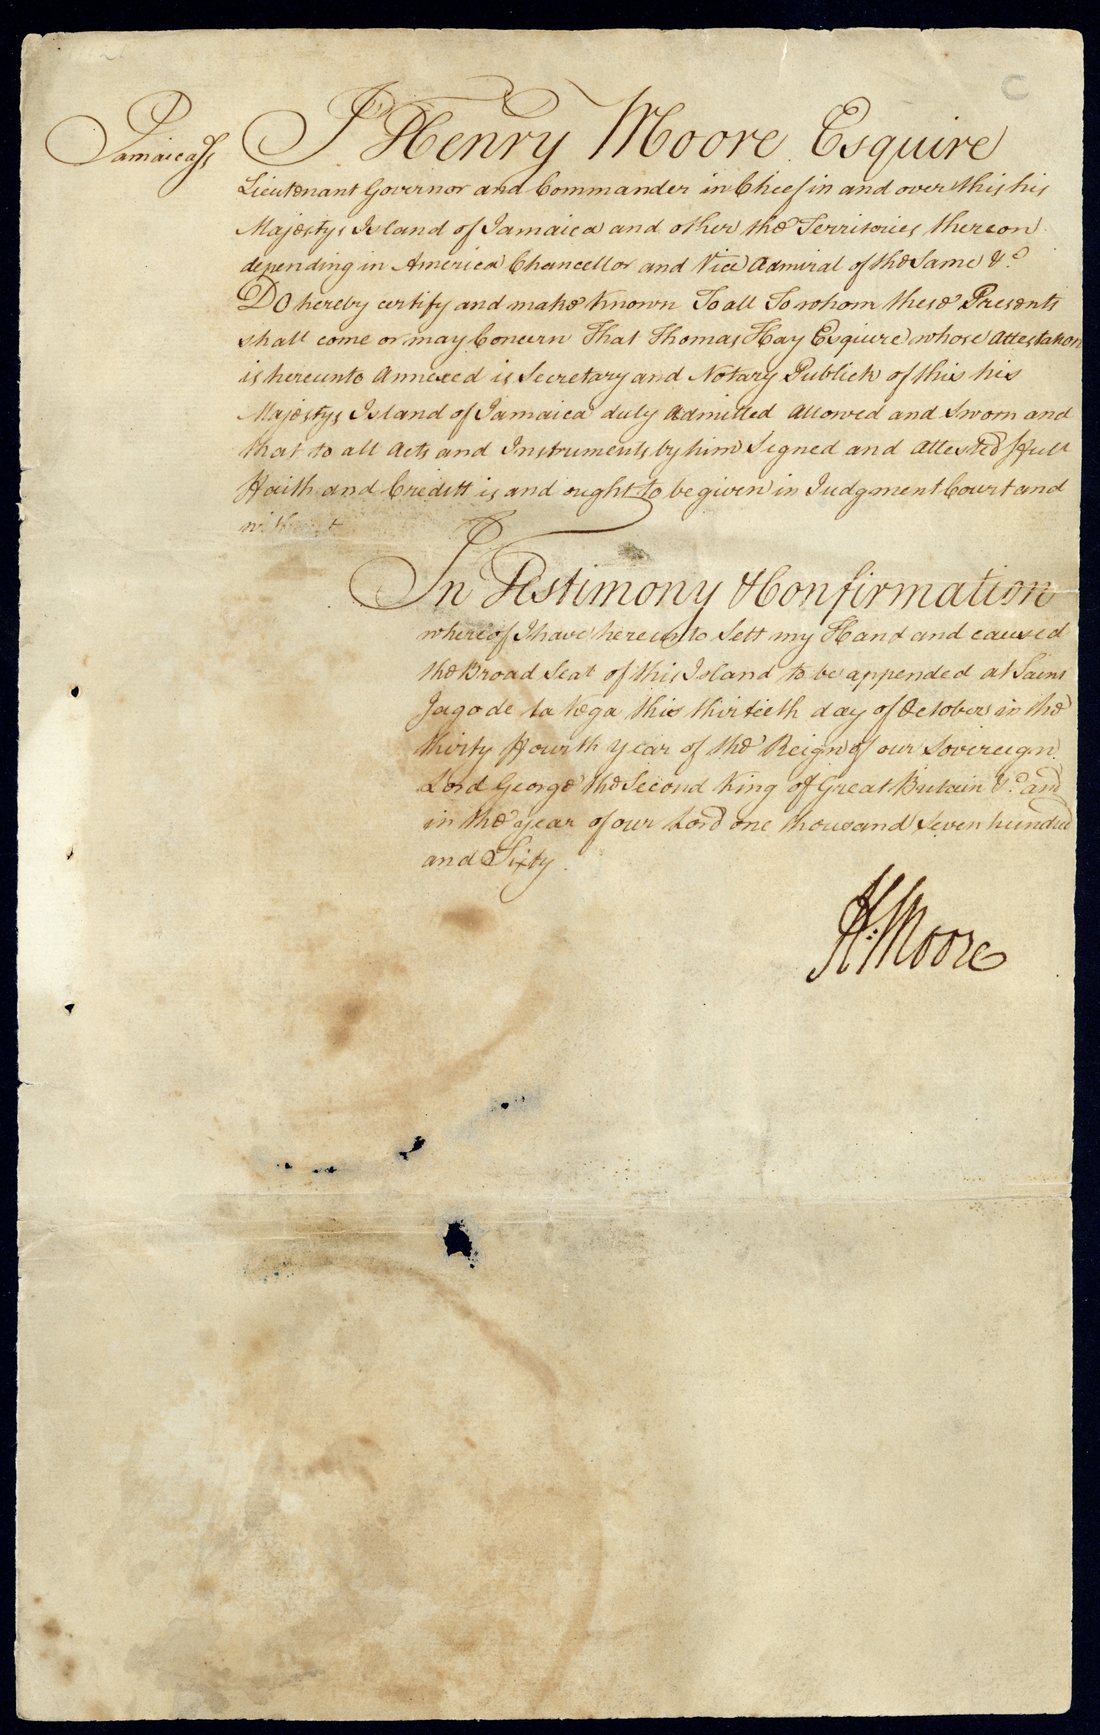 Jamaica Ss
I Henry Moore Esquire
Lieutenant Governor and Commander in Chief in and over this his
Majestys Island of Jamaica and other the Territories thereon
depending in America Chancellor and Vice Admiral of the Same &c
Do hereby certify and make known To all To whom these Presents
shall come or may Concern That Thomas Hay Esquire whose Attestation
is hereunto Annexed is Secretary and Notary Publick of this his
Majestys Island of Jamaica duly Admitted Allowed and Sworn and
that to all Acts and Instruments by him Signed and Attested ffull
ffaith and Creditt is and ought to be given in Judgment Court and
without
In Testimony & Confirmation
whereof I have hereunto Sett my Hand and caused
the Broad Seal of this Island to be appended at Saint
Jago de la Vega this thirtieth day of October in the
thirty ffourth year of the Reign of our Sovereign
Lord George the Second King of Great Britain &c and
in the year of our Lord one thousand Seven hundred
and Sixty
H: Moore
C